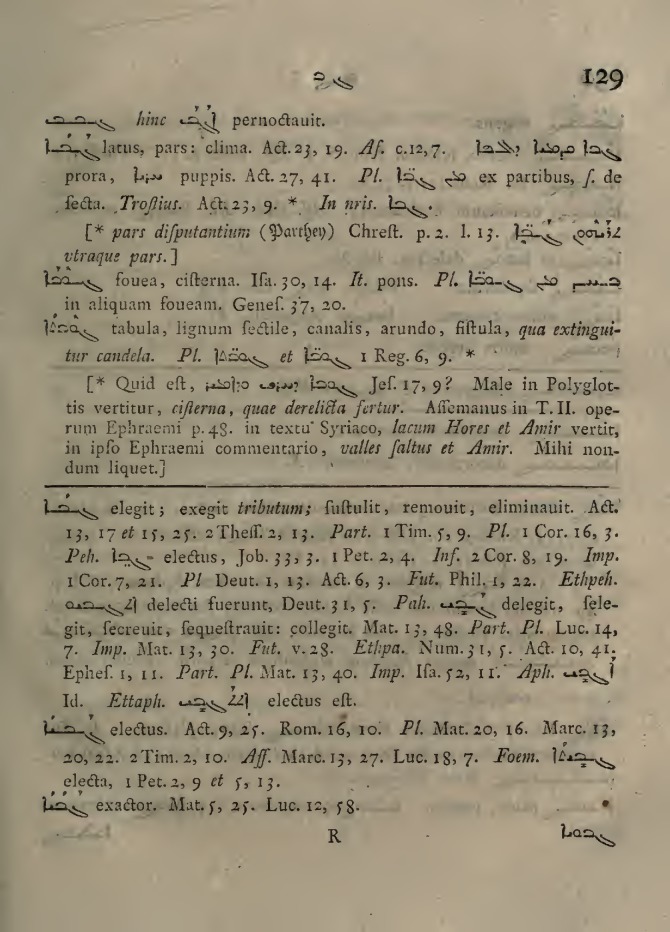 ܓܒ 129
hinc pernoctauit.
ܓܒܐ latus, pars: clima. Act. 23, 19. Af. c. 12, 7.
prora, puppis. Act. 27, 41. Pl. ex partibus, ſ. de
ſecta. Troſtius. Act. 23, 9. * In nris. ܓܒܐ.
[* pars diſputantium (Parthey) Chreſt. p. 2. l. 13.
vtraque pars.]
ܓܘܒܐ fouea, ciſterna. Iſa. 30, 14. It. pons. Pl.
in aliquam foueam. Geneſ. 37, 20.
tabula, lignum ſectile, canalis, arundo, fiſtula, qua extingui-
tur candela. Pl. et 1 Reg. 6, 9. *
[* Quid eſt, Jeſ. 17, 9? Male in Polyglot-
tis vertitur, ciſterna, quae derelicta fertur. Aſſemanus in T. II. ope-
rum Ephraemi p. 48. in textu Syriaco, lacum Hores et Amir vertit,
in ipſo Ephraemi commentario, valles ſaltus et Amir. Mihi non-
dum liquet.]
ܓܒܐ elegit; exegit tributum; ſuſtulit, remouit, eliminauit. Act.
13, 17 et 15, 25. 2 Theſſ. 2, 13. Part. 1 Tim. 5, 9. Pl. 1 Cor. 16, 3.
Peh. ܓܒܐ electus, Job. 33, 3. 1 Pet. 2, 4. Inf. 2 Cor. 8, 19. Imp.
1 Cor. 7, 21. Pl Deut. 1, 13. Act. 6, 3. Fut. Phil. 1, 22. Ethpeh.
ܐܬܓܒܝܘ delecti fuerunt, Deut. 31, 5. Pah. ܓܒܝ delegit, ſele-
git, ſecreuit, ſequeſtrauit: collegit. Mat. 13, 48. Part. Pl. Luc. 14,
7. Imp. Mat. 13, 30. Fut. v. 28. Ethpa. Num. 31, 5. Act. 10, 41.
Epheſ. 1, 11. Part. Pl. Mat. 13, 40. Imp. Iſa. 52, 11. Aph. ܐܓܒܝ
Id. Ettaph. ܐܬܬܓܒܝ electus eſt.
ܓܒܝܐ electus. Act. 9, 25. Rom. 16, 10. Pl. Mat. 20, 16. Marc. 13,
20, 22. 2 Tim. 2, 10. Aff. Marc. 13, 27. Luc. 18, 7. Foem. ܓܒܝܬܐ
electa, 1 Pet. 2, 9 et 5, 13.
ܓܒܝܐ exactor. Mat. 5, 25. Luc. 12, 58.
R